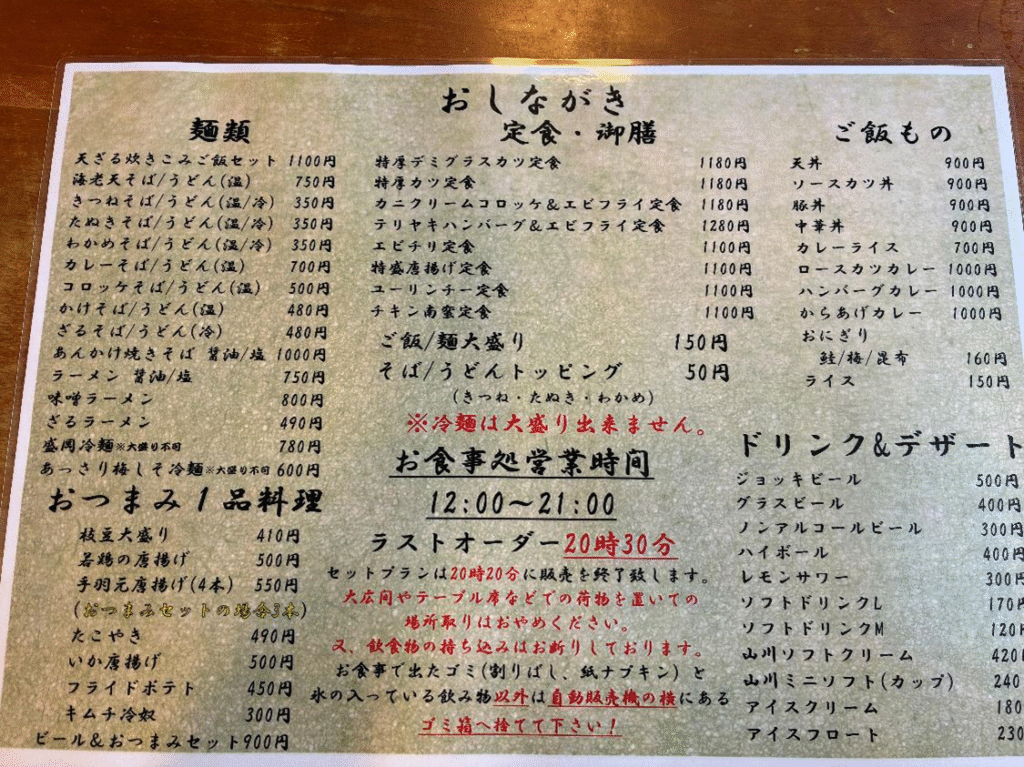 おしながき
麺類
天ざる炊きこみご飯セット 1100円
海老天そば/うどん(温) 750円
きつねそば/うどん(温/冷) 350円
たぬきそば/うどん(温/冷) 350円
わかめそば/うどん(温/冷) 350円
カレーそば/うどん(温) 700円
コロッケそば/うどん(温) 500円
かけそば/うどん(温) 480円
ざるそば/うどん(冷) 480円
あんかけ焼きそば 醤油/塩 1000円
ラーメン 醤油/塩 750円
味噌ラーメン 800円
ざるラーメン 490円
盛岡冷麺※大盛り不可 780円
あっさり梅しそ冷麺※大盛り不可 600円
おつまみ1品料理
枝豆大盛り 410円
若鶏の唐揚げ 500円
手羽元唐揚げ(4本) 550円
(おつまみセットの場合3本)
たこやき 490円
いか唐揚げ 500円
フライドポテト 450円
キムチ冷奴 300円
ビール&おつまみセット900円
定食・御膳
特厚デミグラスカツ定食 1180円
特厚カツ定食 1180円
カニクリームコロッケ&エビフライ定食 1180円
テリヤキハンバーグ&エビフライ定食 1280円
エビチリ定食 1100円
特盛唐揚げ定食 1100円
ユーリンチー定食 1100円
チキン南蛮定食 1100円
ご飯/麺大盛り 150円
そば/うどんトッピング 50円
(きつね・たぬき・わかめ)
※冷麺は大盛り出来ません。
お食事処営業時間
12:00〜21:00
ラストオーダー20時30分
セットプランは20時20分に販売を終了致します。
大広間やテーブル席などでの荷物を置いての
場所取りはおやめください。
又、飲食物の持ち込みはお断りしております。
お食事で出たゴミ(割りばし、紙ナプキン)と
氷の入っている飲み物以外は自動販売機の横にある
ゴミ箱へ捨てて下さい!
ご飯もの
天丼 900円
ソースカツ丼 900円
豚丼 900円
中華丼 900円
カレーライス 700円
ロースカツカレー 1000円
ハンバーグカレー 1000円
からあげカレー 1000円
おにぎり
鮭/梅/昆布 160円
ライス 150円
ドリンク&デザート
ジョッキビール 500円
グラスビール 400円
ノンアルコールビール 300円
ハイボール 400円
レモンサワー 300円
ソフトドリンクL 170円
ソフトドリンクM 120円
山川ソフトクリーム 420円
山川ミニソフト(カップ) 240
アイスクリーム 180
アイスフロート 230